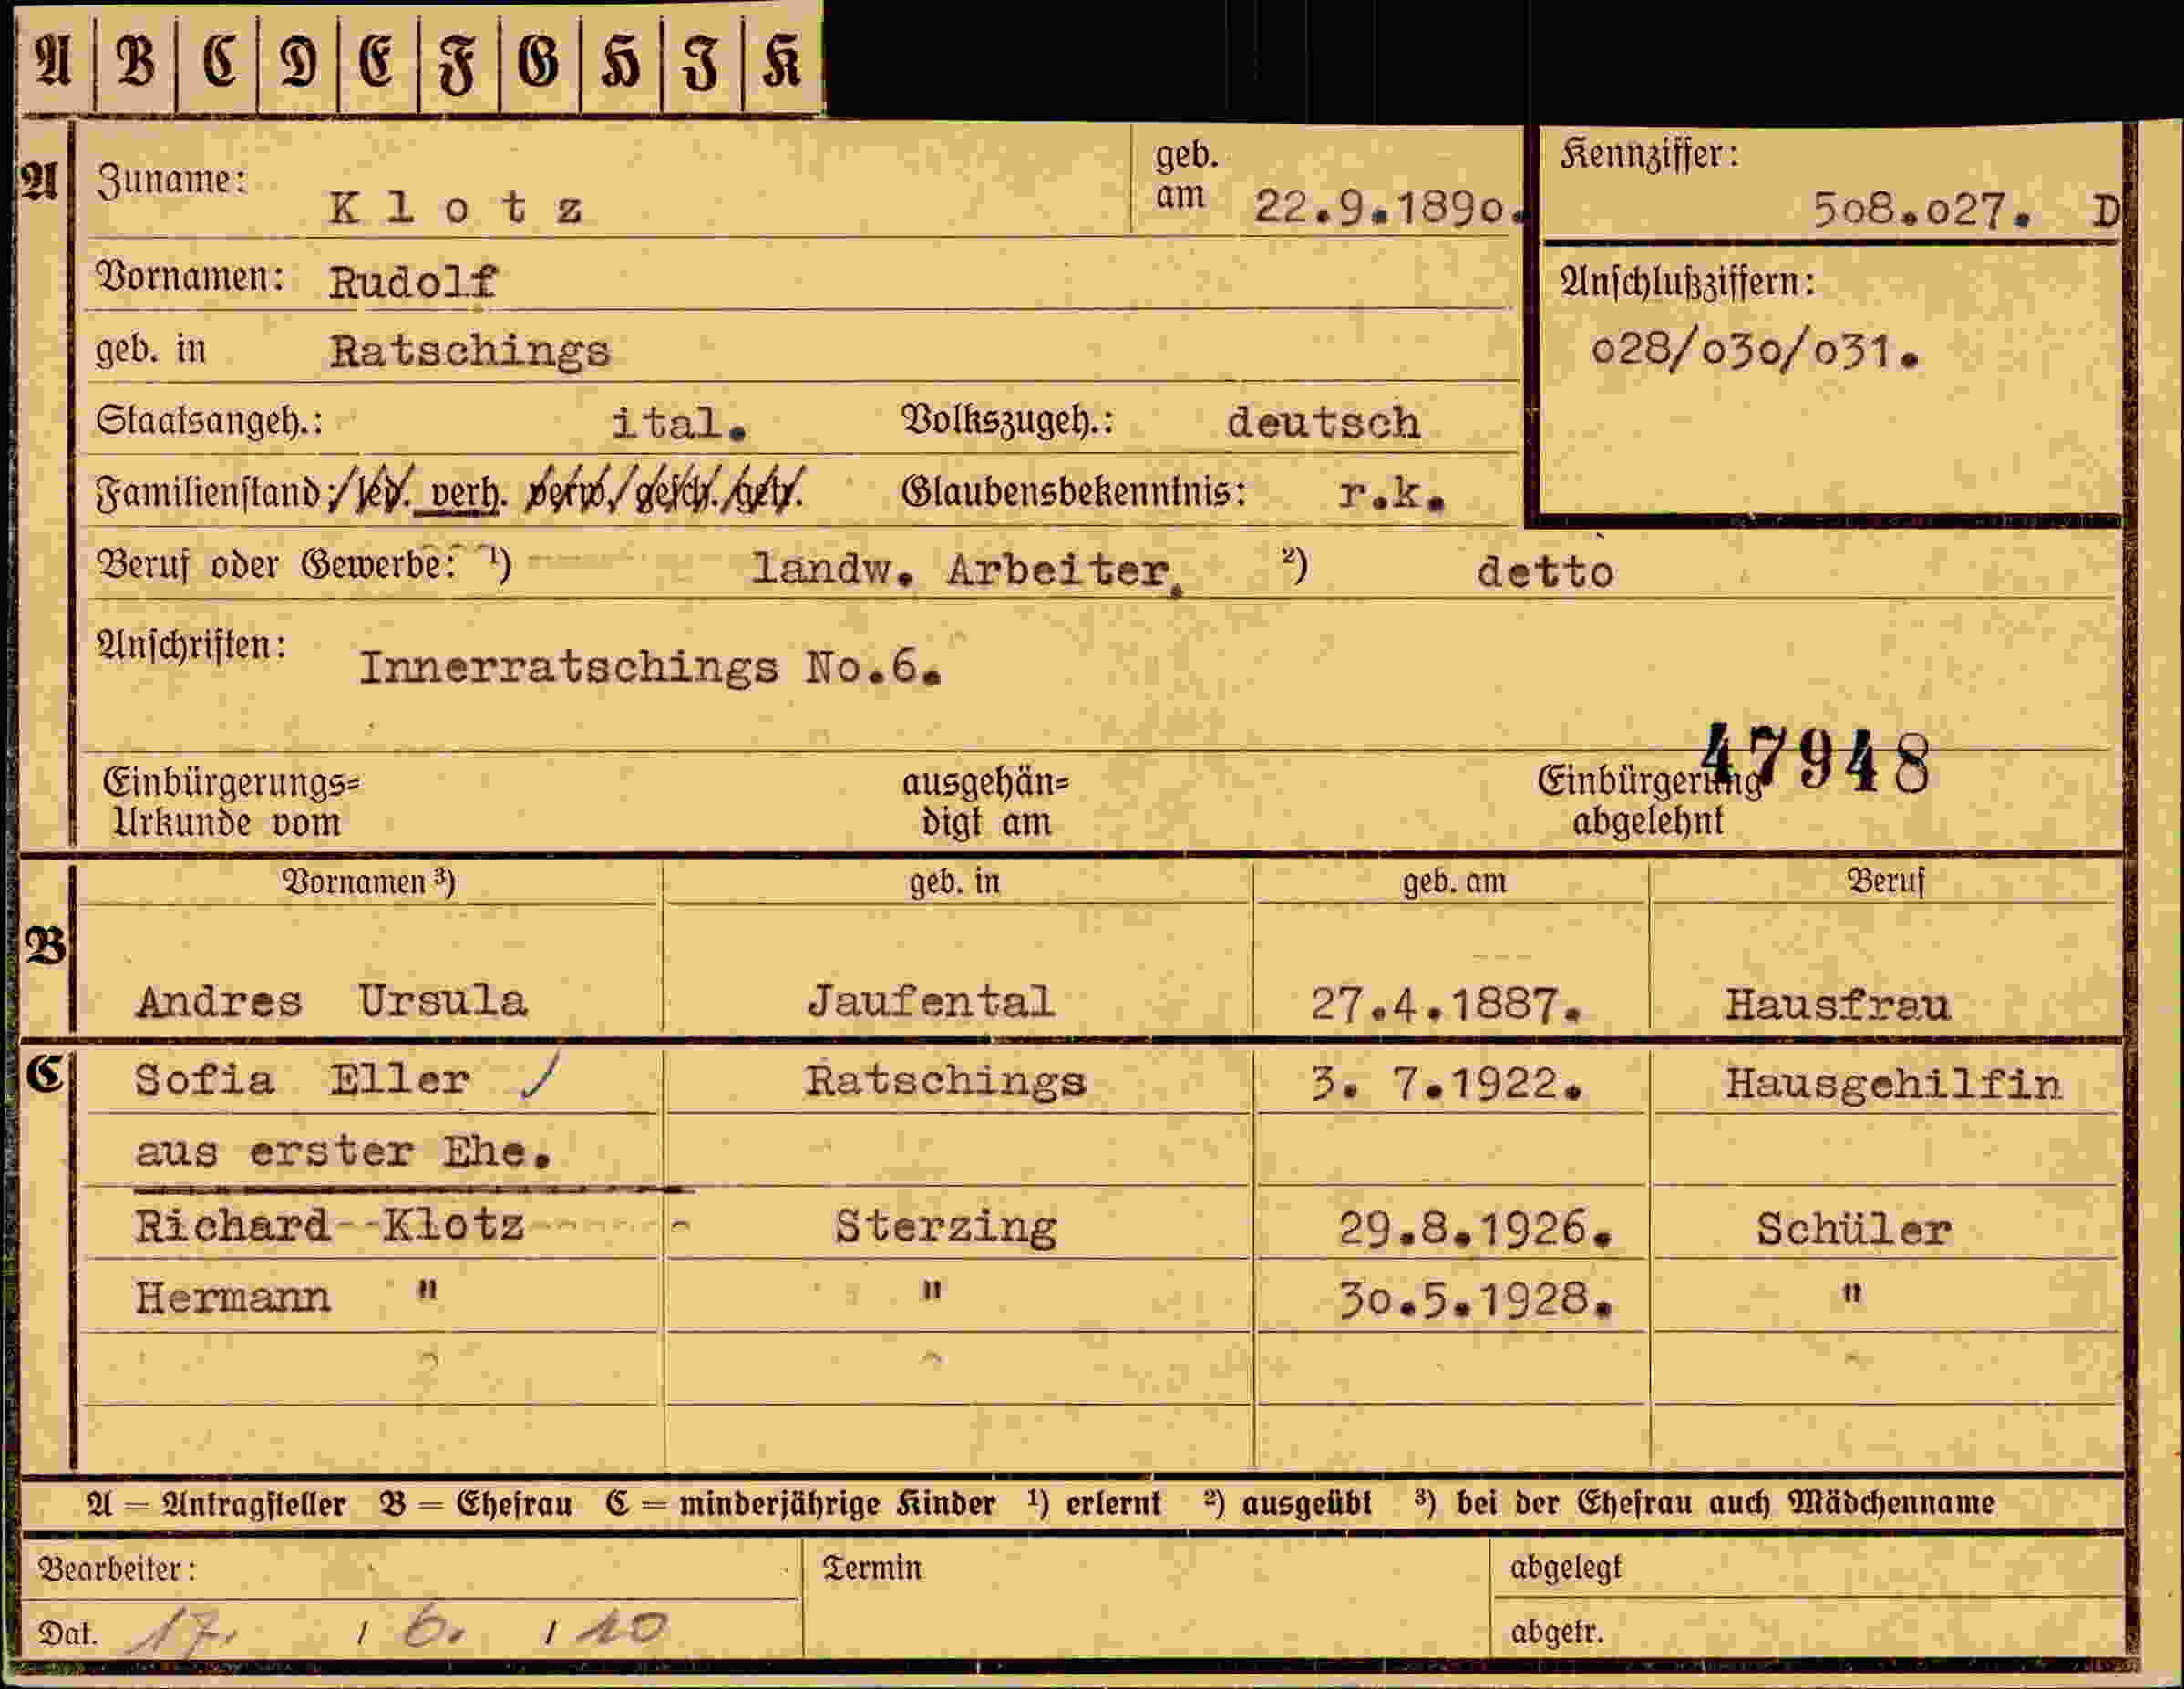 A B C D E F G H I K
A Zuname: Klotz geb. am 22.9.1890. Kennziffer: 508.027. D
Vornamen: Rudolf Anschlußziffern:
geb. in Ratschings 028/030/031.
Staatsangeh.: ital. Volkszugeh.: deutsch
Familienstand: led. verh. verw. gesch. getr. Glaubensbekenntnis: r.k.
Beruf oder Gewerbe: ¹) landw. Arbeiter. ²) detto
Anschriften: Innerratschings No.6.
47948
Einbürgerungs= ausgehän= Einbürgerung
Urkunde vom digt am abgelehnt
Vornamen ³) geb. in geb. am Beruf
B
Andres Ursula Jaufental 27.4.1887. Hausfrau
C Sofia Eller / Ratschings 3. 7.1922. Hausgehilfin
aus erster Ehe.
Richard Klotz Sterzing 29.8.1926. Schüler
Hermann " " 30.5.1928. "
A = Antragsteller B = Ehefrau C = minderjährige Kinder ¹) erlernt ²) ausgeübt ³) bei der Ehefrau auch Mädchenname
Bearbeiter: Termin abgelegt
Dat. 17. / 6. / 40 abgetr.